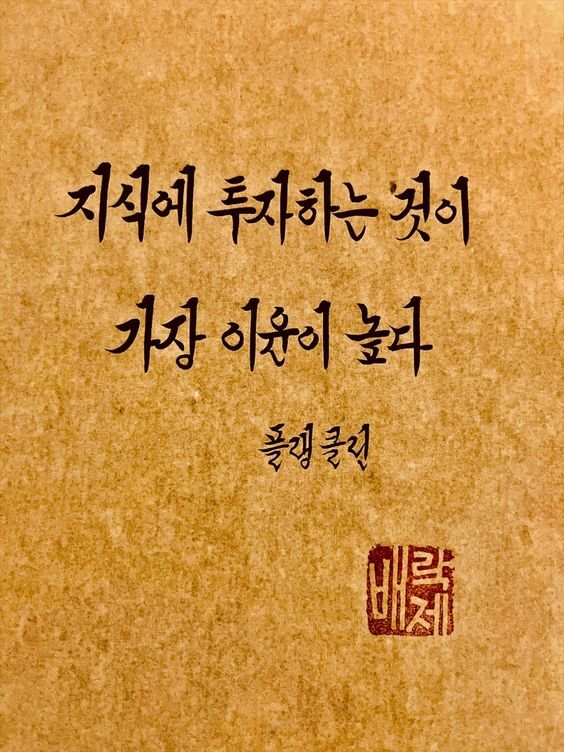 지식에 투자하는 것이
가장 이윤이 높다
플랩클린
배락제